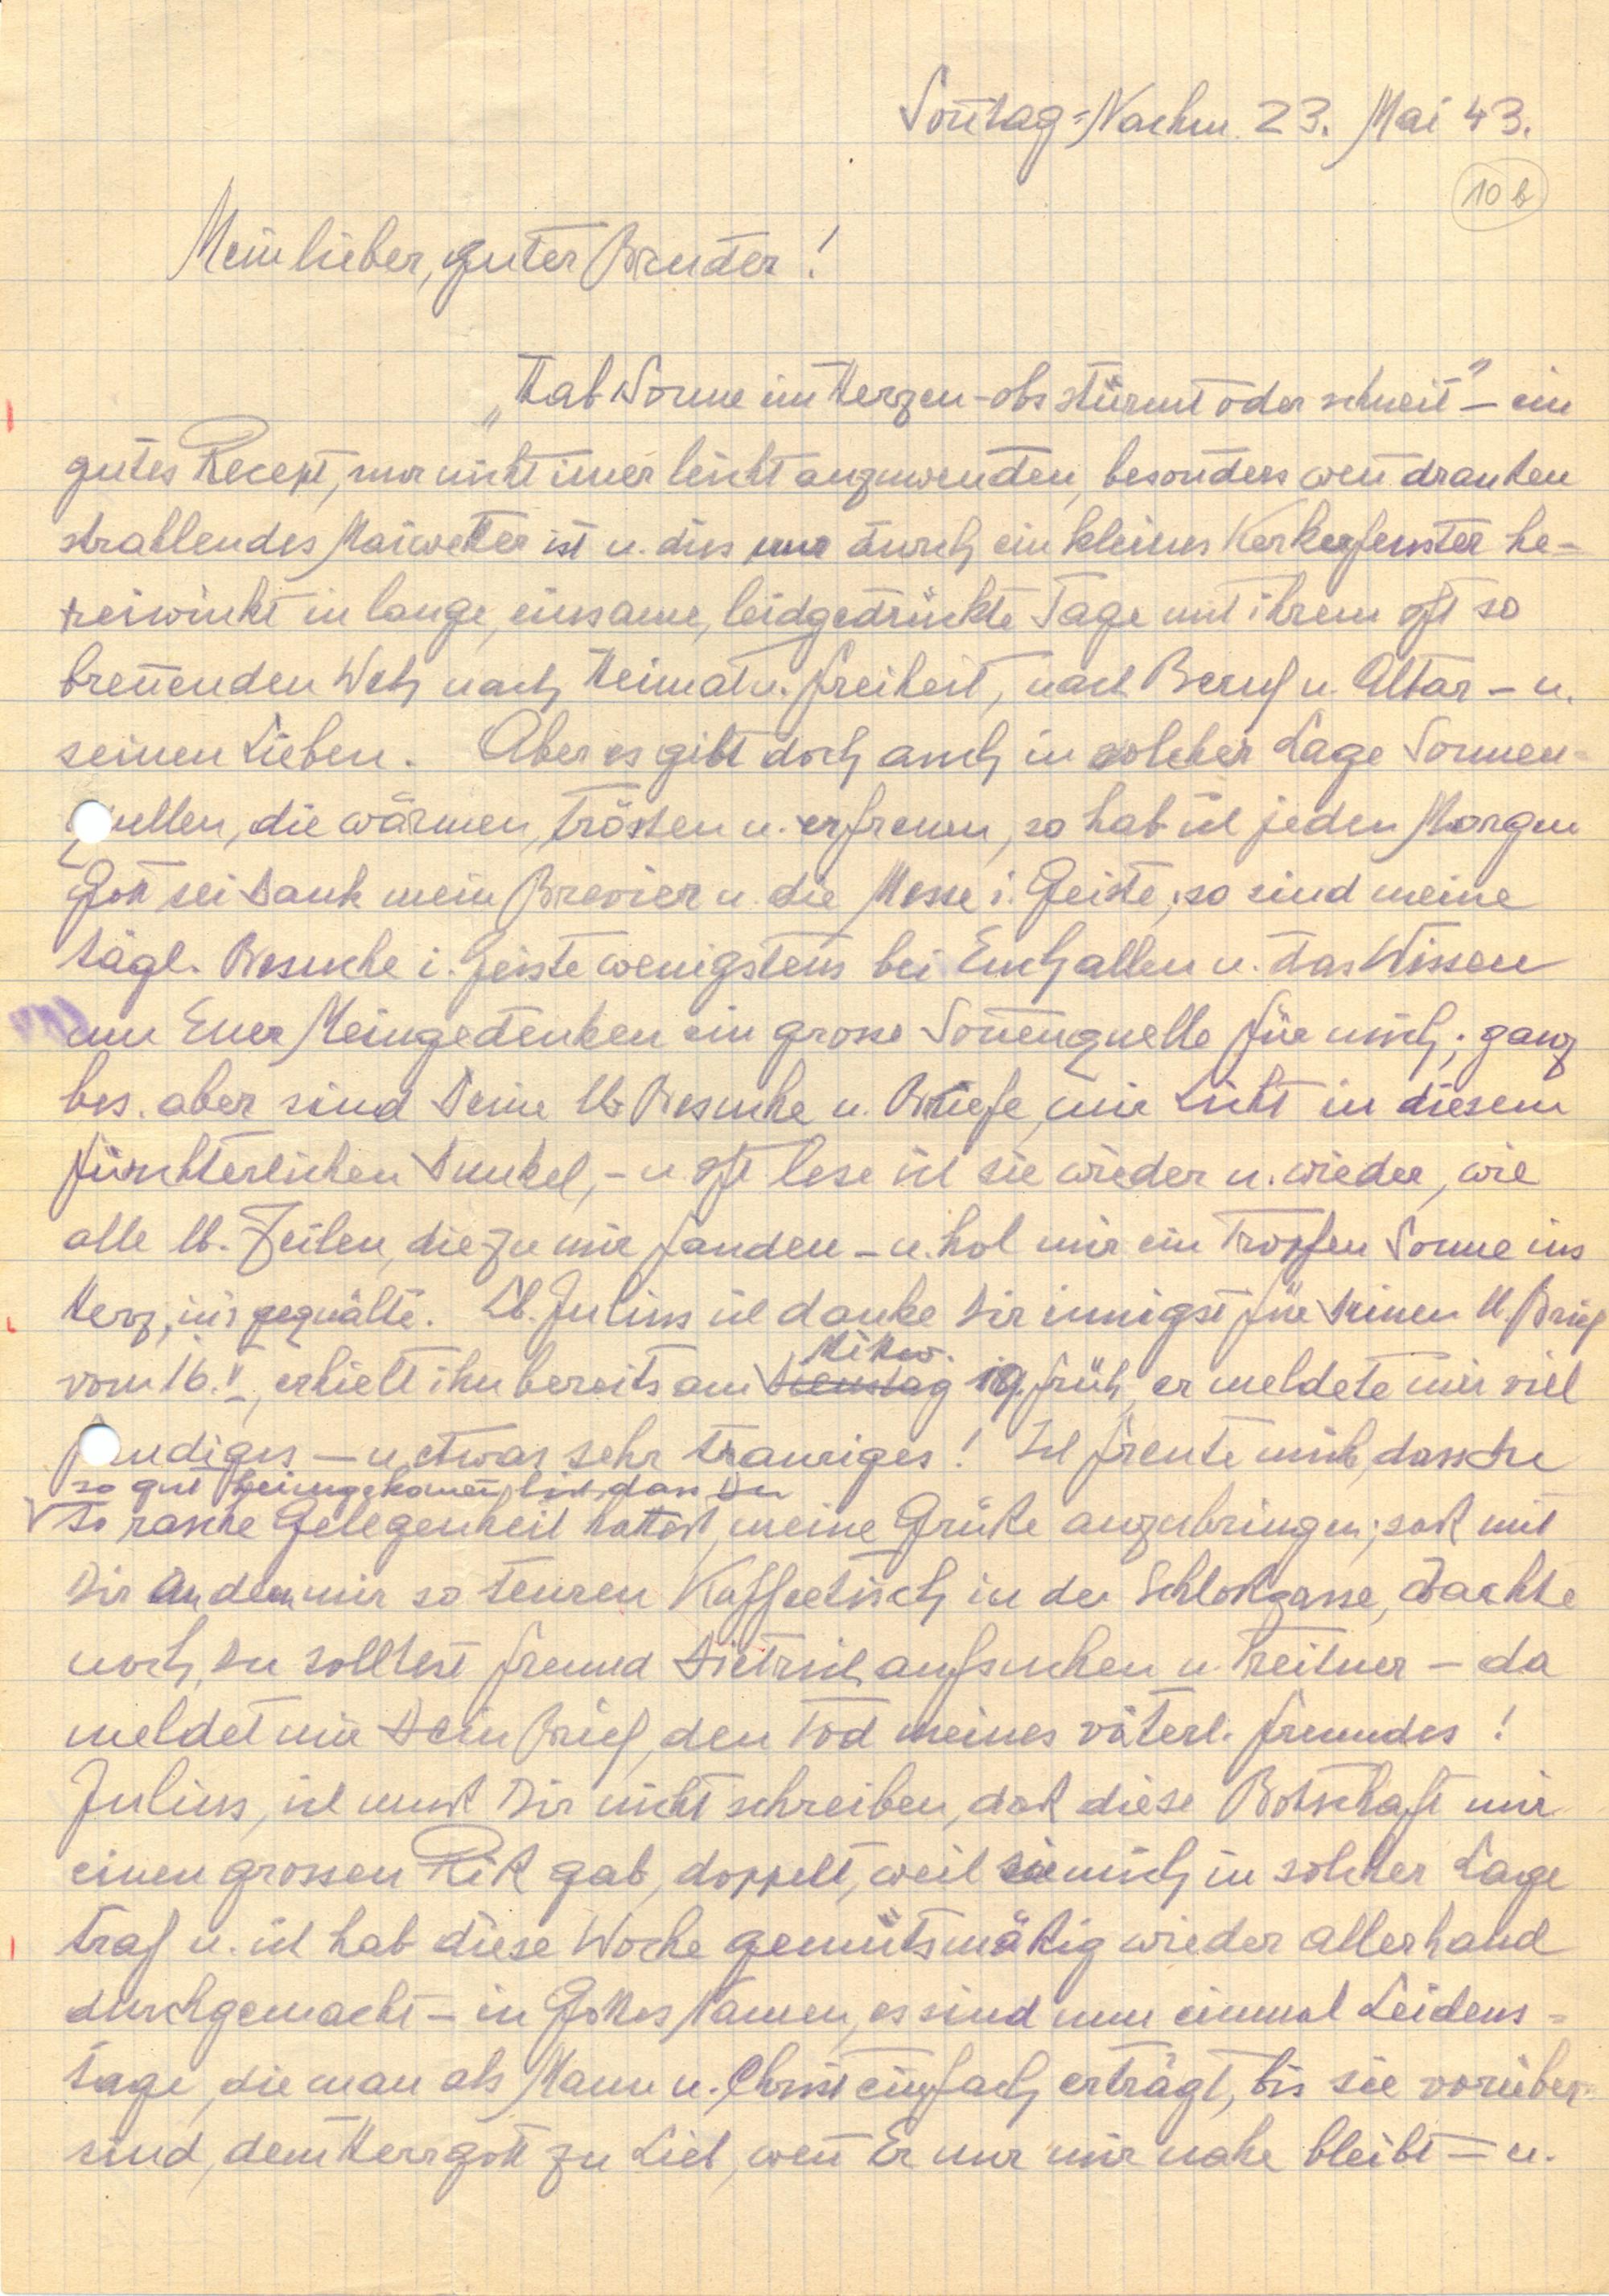 Soñtag-Nachm. 23. Mai 43.
10 b
Mein lieber, guter Bruder!
„Hab Sonne im Herzen - obs stürmt oder schneit" - ein
gutes Recept, nur nicht im̄er leicht anzuwenden, besonders weñ draußen
strahlendes Maiwetter ist u. dies nur durch ein kleines Kerkerfenster he-
reiwinkt in lange, einsame, leidgedrückte Tage mit ihrem oft so
breñenden Weh nach Heimat u. Freiheit, nach Beruf u. Altar - u.
seinen Lieben. Aber es gibt doch auch in solcher Lage Sonnen-
quellen, die wärmen, trösten u. erfreuen, so hab ich jeden Morgen
Gott sei Dank mein Brevier u. die Messe i. Geiste, so sind meine
tägl. Besuche i. Geiste wenigstens bei Euch allen u. das Wissen
um Euer Meingedenken ein grosse Soñenquelle für mich; ganz
bes. aber sind Deine lb. Besuche u. Briefe mir Licht in diesem
fürchterlichen Dunkel, - u. oft lese ich sie wieder u. wieder, wie
alle lb. Zeilen, die zu mir fanden - u. hol mir ein Tropfen Sonne ins
Herz, ins gequälte. Lb. Julius ich danke Dir innigst für Deinen lb. Brief
vom 16. V., erhielt ihn bereits am Dienstag Mittw. 19. früh, er meldete mir viel
freudiges - u. etwas sehr trauriges! Ich freute mich, dass Du
so gut heimgekom̄en bist, dass Du
so rasche Gelegenheit hattest, meine Grüße anzubringen; saß mit
Dir an dem mir so teuren Kaffeetisch in der Schloßgasse, dachte
noch, Du solltest Freund Dietrich aufsuchen u. Treitner - da
meldet mir Dein Brief, den Tod meines väterl. Freundes!
Julius, ich muß Dir nicht schreiben, daß diese Botschaft mir
einen grossen Riß gab, doppelt, weil sie mich in solcher Lage
traf u. ich hab diese Woche gemütsmäßig wieder allerhand
durchgemacht - in Gottes Namen, es sind nun einmal Leidens-
tage, die man als Mann u. Christ einfach erträgt, bis sie vorüber
sind, dem Herrgott zu Lieb, weñ Er nur mir nahe bleibt - u.